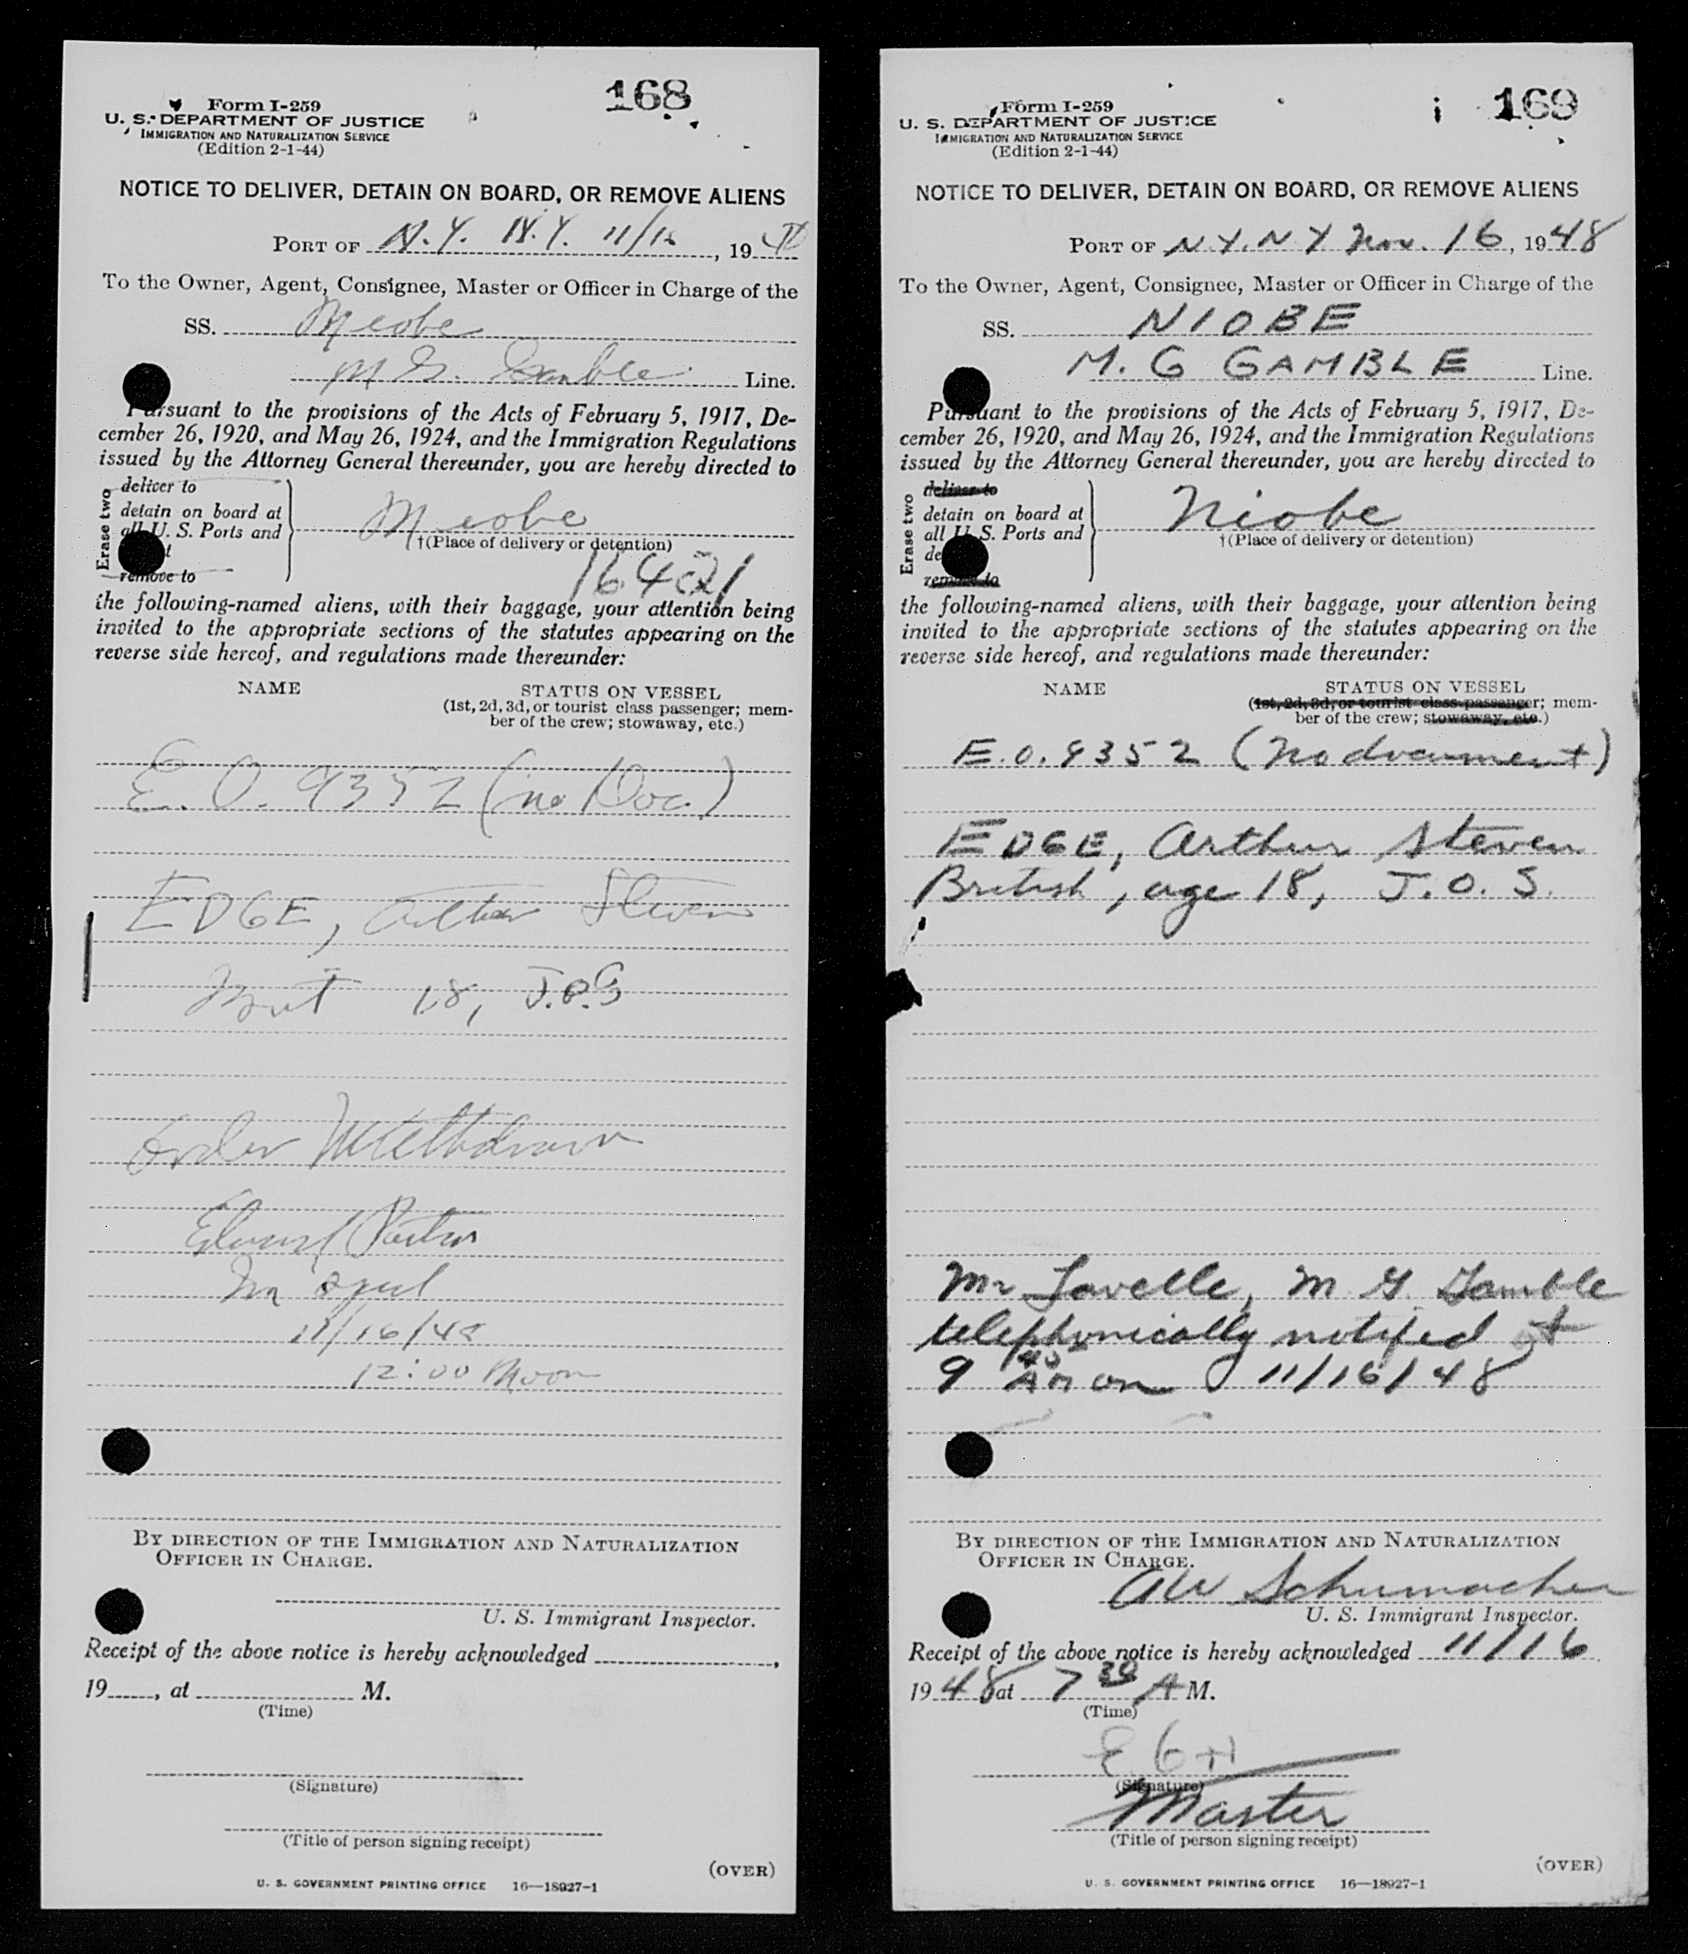 168
Form I-259
U. S. DEPARTMENT OF JUSTICE
IMMIGRATION AND NATURALIZATION SERVICE
(Edition 2-1-44)
NOTICE TO DELIVER, DETAIN ON BOARD, OR REMOVE ALIENS
PORT OF N.Y. N.Y. 11/16, 19
To the Owner, Agent, Consignee, Master or Officer in Charge of the
SS. Meobe
M G. Gamble Line.
Pursuant to the provisions of the Acts of February 5, 1917, De-
cember 26, 1920, and May 26, 1924, and the Immigration Regulations
issued by the Attorney General thereunder, you are hereby directed to
Erase two
deliver to
detain on board at
all U. S. Ports and
remove to
Meobe
†(Place of delivery or detention)
16421
the following-named aliens, with their baggage, your attention being
invited to the appropriate sections of the statutes appearing on the
reverse side hereof, and regulations made thereunder:
NAME STATUS ON VESSEL
(1st, 2d, 3d, or tourist class passenger; mem-
ber of the crew; stowaway, etc.)
E. O. 9352 (no Doc.)
EDGE, Arthur Steven
Brit 18, J.O.S
Order Withdrawn
Edward
11/16/48
12:00 Noon
BY DIRECTION OF THE IMMIGRATION AND NATURALIZATION
OFFICER IN CHARGE.
U. S. Immigrant Inspector.
Receipt of the above notice is hereby acknowledged ,
19 , at M.
(Time)
(Signature)
(Title of person signing receipt)
(OVER)
U. S. GOVERNMENT PRINTING OFFICE 16—18927-1
169
Form I-259
U. S. DEPARTMENT OF JUSTICE
IMMIGRATION AND NATURALIZATION SERVICE
(Edition 2-1-44)
NOTICE TO DELIVER, DETAIN ON BOARD, OR REMOVE ALIENS
PORT OF N.Y. N Y Nov. 16, 1948
To the Owner, Agent, Consignee, Master or Officer in Charge of the
SS. NIOBE
M. G GAMBLE Line.
Pursuant to the provisions of the Acts of February 5, 1917, De-
cember 26, 1920, and May 26, 1924, and the Immigration Regulations
issued by the Attorney General thereunder, you are hereby directed to
Erase two
deliver to
detain on board at
all U. S. Ports and
de
remove to
Niobe
†(Place of delivery or detention)
the following-named aliens, with their baggage, your attention being
invited to the appropriate sections of the statutes appearing on the
reverse side hereof, and regulations made thereunder:
NAME STATUS ON VESSEL
(1st, 2d, 3d, or tourist class passenger; mem-
ber of the crew; stowaway, etc.)
E.O. 9352 (No document)
EDGE, Arthur Steven
British, age 18, J.O.S.
Mr Lavelle, M. G. Gamble
telephonically notified at
9 40 AM on 11/16/48
BY DIRECTION OF THE IMMIGRATION AND NATURALIZATION
OFFICER IN CHARGE.
AW Schumacher
U. S. Immigrant Inspector.
Receipt of the above notice is hereby acknowledged 11/16
1948, at 7 30 A M.
(Time)
(Signature)
Master
(Title of person signing receipt)
(OVER)
U. S. GOVERNMENT PRINTING OFFICE 16—18927-1